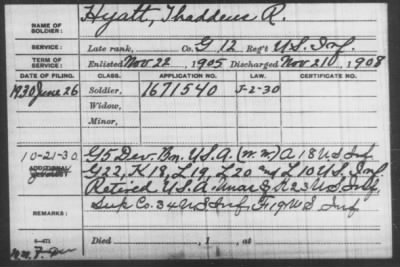 NAME OF SOLDIER: Hyatt, Thaddeus R.
SERVICE: Late rank, Co. G 12 Reg't U.S. Inf.
TERM OF SERVICE: Enlisted Nov. 22, 1905 Discharged Nov 21, 1908
DATE OF FILING. CLASS. APPLICATION NO. LAW. CERTIFICATE NO.
1930 June 26 Soldier, 1671540 J-2-30
Widow,
Minor,
10-21-30 G 5 Dev. Bn. U.S.A. (W.W.) A 18 U S Inf
ADDITIONAL G 22, K 18, L 19, L 20 and L 10 U.S. Inf.
Retired U.S.A. 23 U S Inf,
REMARKS: Sup Co. 34 U S Inf, F 19 U S Inf
Died , 1 , at